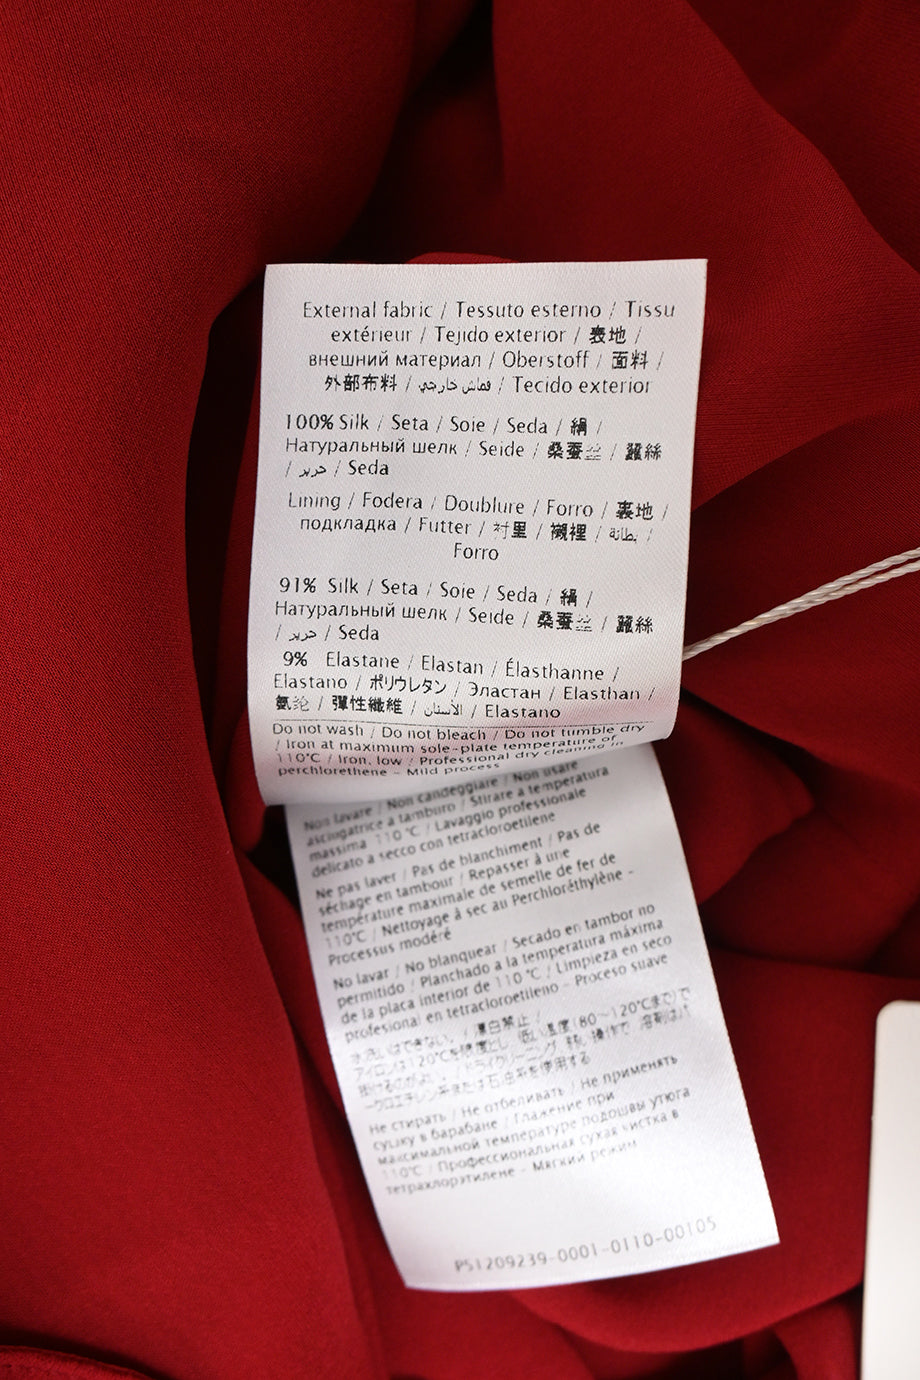 External fabric / Tessuto esterno / Tissu
extérieur / Tejido exterior / 表地 /
внешний материал / Oberstoff / 面料 /
外部布料 / قماش خارجي / Tecido exterior
100% Silk / Seta / Soie / Seda / 絹 /
Натуральный шелк / Seide / 桑蚕丝 / 蠶絲
/ حرير / Seda
Lining / Fodera / Doublure / Forro / 裏地 /
подкладка / Futter / 衬里 / 襯裡 / بطانة /
Forro
91% Silk / Seta / Soie / Seda / 絹 /
Натуральный шелк / Seide / 桑蚕丝 / 蠶絲
/ حرير / Seda
9% Elastane / Elastan / Élasthanne /
Elastano / ポリウレタン / Эластан / Elasthan /
氨纶 / 彈性纖維 / الأستان / Elastano
Do not wash / Do not bleach / Do not tumble dry
/ Iron at maximum sole-plate temperature of
110°C / Iron, low / Professional dry cleaning in
perchlorethene - Mild process
Non lavare / Non candeggiare / Non usare
asciugatrice a tamburo / Stirare a temperatura
massima 110°C / Lavaggio professionale
delicato a secco con tetracloroetilene
Ne pas laver / Pas de blanchiment / Pas de
séchage en tambour / Repasser à une
température maximale de semelle de fer de
110°C / Nettoyage à sec au Perchloréthylène -
Processus modéré
No lavar / No blanquear / Secado en tambor no
permitido / Planchado a la temperatura máxima
de la placa interior de 110°C / Limpieza en seco
profesional en tetracloroetileno - Proceso suave
水洗いはできない。 / 漂白禁止 /
アイロンは120℃を限度とし、低い温度(80～120℃まで)で
掛けるのがよい。 / ドライクリーニング、弱い操作で、溶剤はパ
ークロエチレン又は石油系を使用する
Не стирать / Не отбеливать / Не применять
сушку в барабане / Глажение при
максимальной температуре подошвы утюга
110°C / Профессиональная сухая чистка в
тетрахлорэтилене - Мягкий режим
P51209239-0001-0110-00105